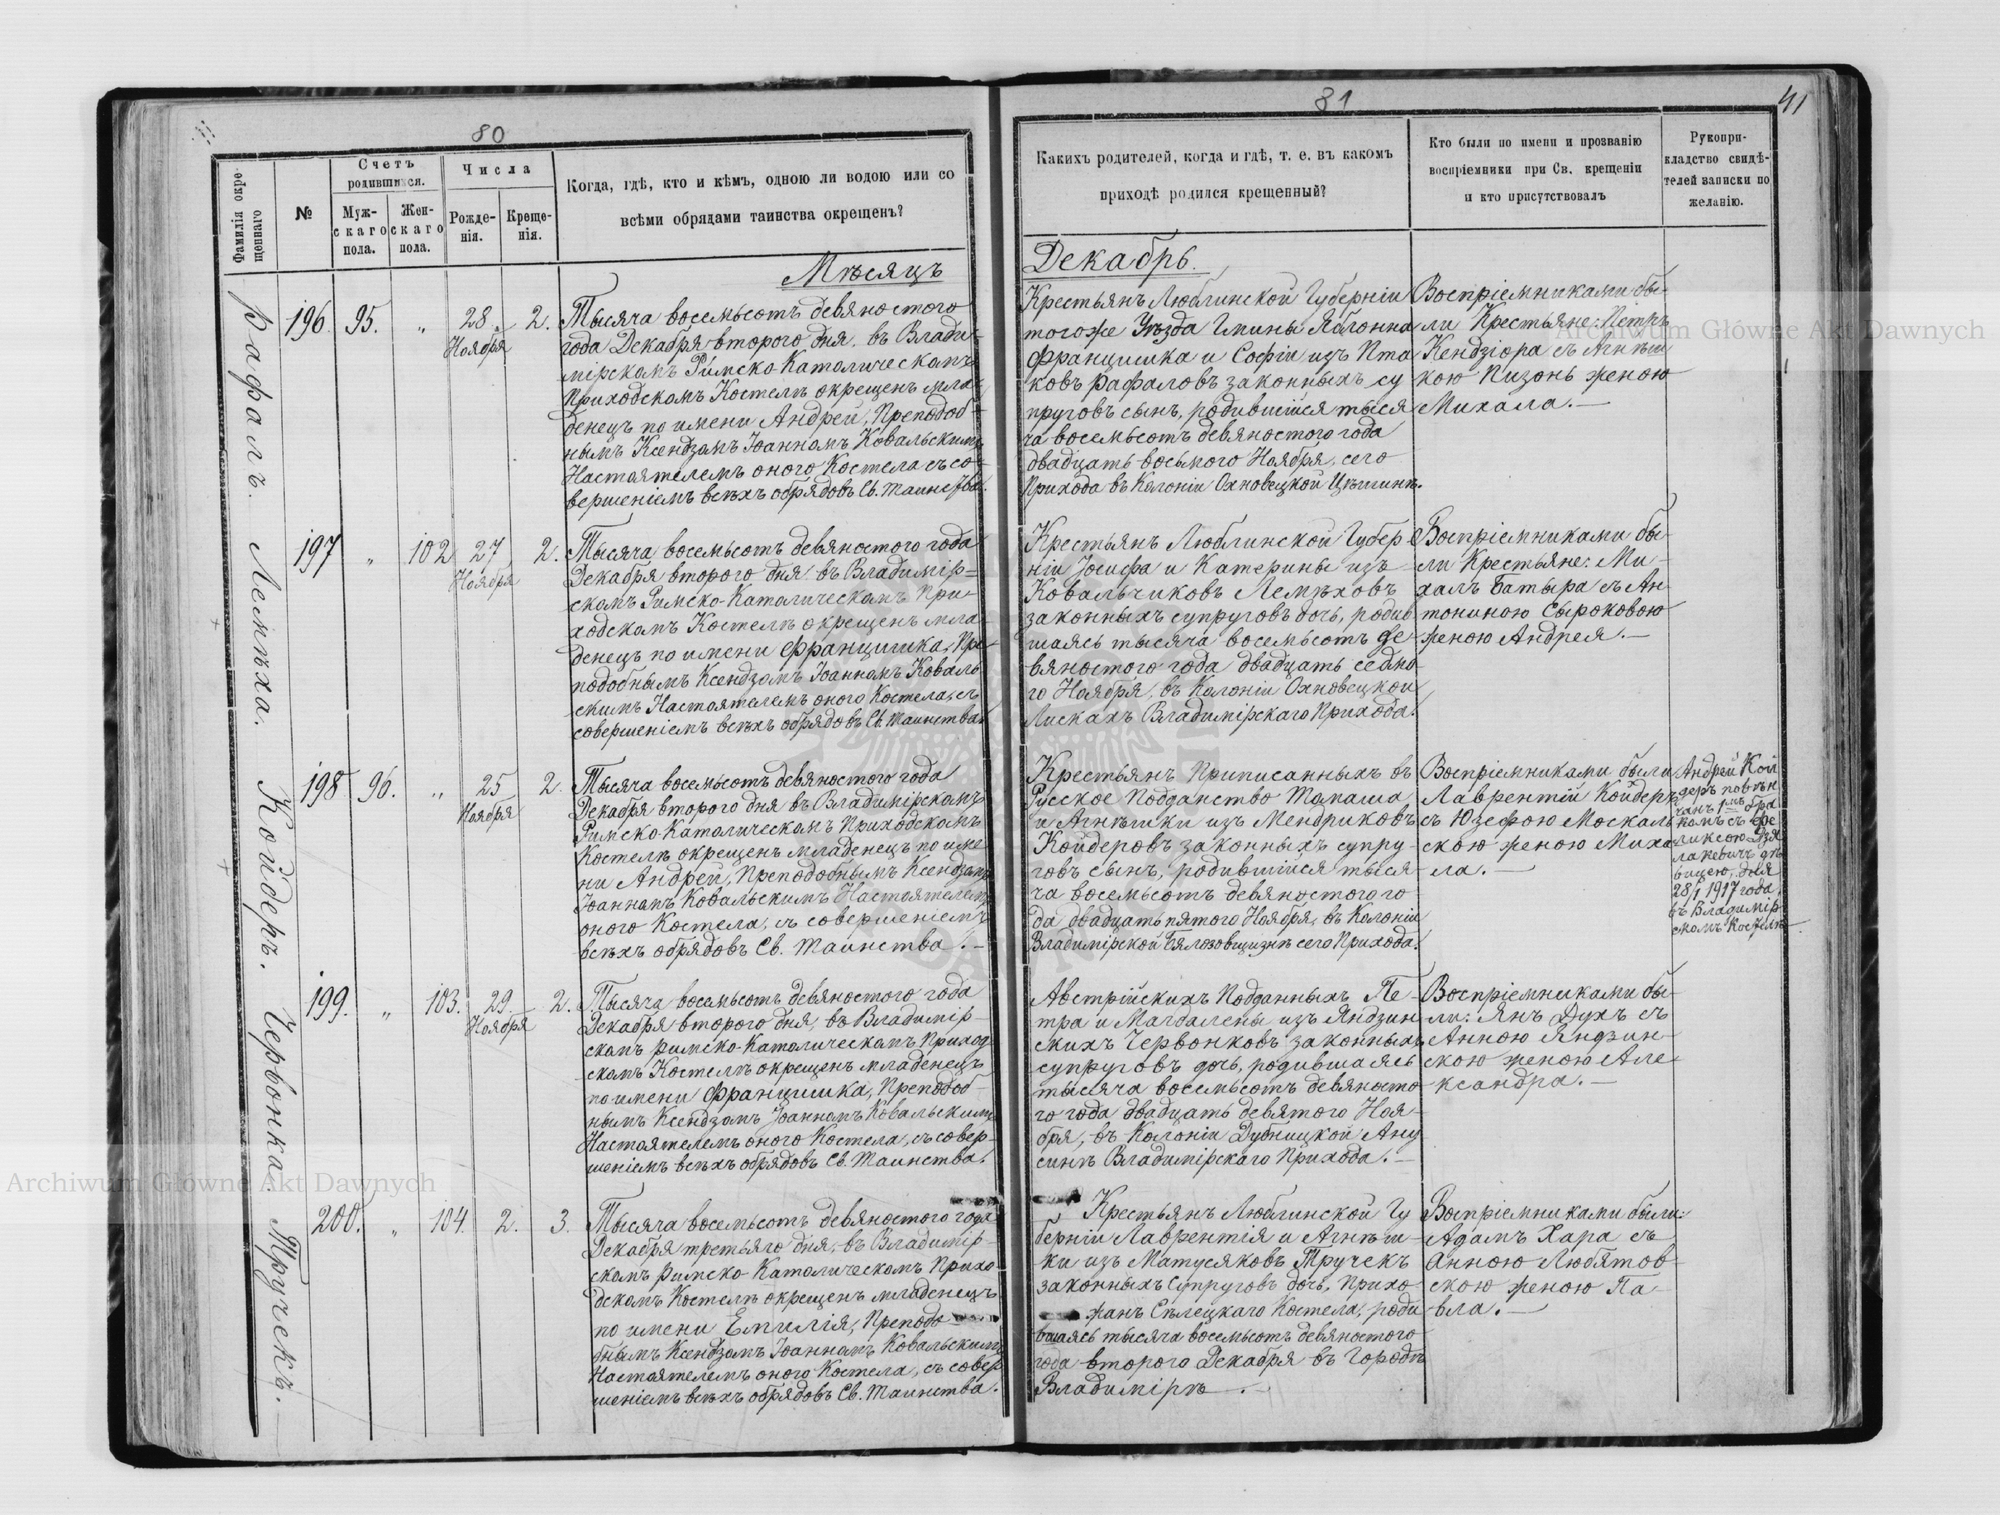 80
81
41
Фамилія окре-
щеннаго
№
Счетъ
родившихся.
Муж-
скаго
пола.
Жен-
скаго
пола.
Числа
Рожде-
нія.
Креще-
нія.
Когда, гдѣ, кто и кѣмъ, одною ли водою или со
всѣми обрядами таинства окрещенъ?
Какихъ родителей, когда и гдѣ, т. е. въ какомъ
приходѣ родился крещенный?
Кто были по имени и прозванію
воспріемники при Св. крещеніи
и кто присутствовалъ
Рукопри-
кладство свидѣ-
телей записки по
желанію.
Мѣсяцъ
Декабрь.
Рафалъ.
196. 95. „ 28. Ноября 2.
Тысяча восемьсотъ девяностого
года Декабря второго дня, въ Влади-
мірскомъ Римско-Католическомъ
Приходскомъ Костелѣ окрещенъ мла-
денецъ по имени Андрей, Преподоб-
нымъ Ксендзомъ Іоанномъ Ковальскимъ
Настоятелемъ оного Костела съ со-
вершеніемъ всѣхъ обрядовъ Св. Таинства.
Крестьянъ Люблинской Губерніи
тогоже Уѣзда Гмины Яблонна
Францишка и Софіи изъ Пта
ковъ Рафаловъ законныхъ су
пруговъ сынъ, родившійся тыся
ча восемьсотъ девяностого года
двадцать восьмого Ноября, сего
Прихода въ Колоніи Охновецкой
Воспріемниками бы-
ли Крестьяне: Петръ
Кендзіора съ Агнѣш
кою Пизонь женою
Михала.—
Лемѣха.
197 „ 102 27 Ноября 2.
Тысяча восемьсотъ девяностого года
Декабря второго дня въ Владимір-
скомъ Римско-Католическомъ При-
ходскомъ Костелѣ окрещенъ мла-
денецъ по имени Францишка, Пре-
подобнымъ Ксендзомъ Іоанномъ Коваль-
скимъ Настоятелемъ оного Костела, съ
совершеніемъ всѣхъ обрядовъ Св. Таинства.
Крестьянъ Люблинской Губер-
ніи Іосифа и Катерины изъ
Ковальчиковъ Лемѣховъ
законныхъ супруговъ дочь, родив
шаясь тысяча восемьсотъ де-
вяностого года двадцать седмо
го Ноября, въ Колоніи Охновецкой
Лискахъ Владимірскаго Прихода.
Воспріемниками бы-
ли Крестьяне: Ми-
халъ Батыра съ Ан
тониною Сыроковою
женою Андрея.—
Койдеръ.
198 96. „ 25 Ноября 2.
Тысяча восемьсотъ девяностого года
Декабря второго дня въ Владимірскомъ
Римско-Католическомъ Приходскомъ
Костелѣ окрещенъ младенецъ по име
ни Андрей, Преподобнымъ Ксендзомъ
Іоанномъ Ковальскимъ Настоятелемъ
оного Костела, съ совершеніемъ
всѣхъ обрядовъ Св. Таинства.—
Крестьянъ Приписанныхъ въ
Русское Подданство Томаша
и Агнѣшки изъ Мендриковъ
Койдеровъ законныхъ супру-
говъ сынъ, родившійся тыся-
ча восемьсотъ девяностого го
да двадцать пятого Ноября, въ Колоніи
Владимірской сего Прихода.
Воспріемниками были
Лаврентій Койдеръ
съ Юзефою Москаль
скою женою Миха
ла.—
Андрей Кой
деръ повѣн
чанъ 1мъ бра
комъ съ Фе
ликсою Дзя
лакевичъ дѣ
вицею, дня
28/I 1917 года,
въ Владимір
скомъ Костелѣ.
Червонка.
199. „ 103. 29 Ноября 2.
Тысяча восемьсотъ девяностого года
Декабря второго дня, въ Владимір-
скомъ Римско-Католическомъ Приход
скомъ Костелѣ окрещенъ младенецъ
по имени Францишка, Преподоб-
нымъ Ксендзомъ Іоанномъ Ковальскимъ
Настоятелемъ оного Костела, съ совер-
шеніемъ всѣхъ обрядовъ Св. Таинства.
Австрійскихъ Подданныхъ Пе-
тра и Магдалены изъ Яндзин
скихъ Червонковъ законныхъ
супруговъ дочь, родившаясь
тысяча восемьсотъ девяносто
го года двадцать девятого Ноя-
бря, въ Колоніи Дубницкой Ану
синѣ Владимірскаго Прихода.—
Воспріемниками бы-
ли: Янъ Духъ съ
Анною Яндзин-
скою женою Але-
ксандра.—
Тручекъ.
200. „ 104. 2. 3.
Тысяча восемьсотъ девяностого года
Декабря третьяго дня, въ Владимір-
скомъ Римско-Католическомъ Прихо
дскомъ Костелѣ окрещенъ младенецъ
по имени Емилія, Преподо
бнымъ Ксендзомъ Іоанномъ Ковальскимъ
Настоятелемъ оного Костела, съ совер
шеніемъ всѣхъ обрядовъ Св. Таинства.
Крестьянъ Люблинской Гу
берніи Лаврентія и Агнѣш-
ки изъ Матусяковъ Тручекъ
законныхъ Супруговъ дочь, Прихо
жанъ Сѣлецкаго Костела, роди
вшаясь тысяча восемьсотъ девяностого
года второго Декабря въ Городѣ
Владимірѣ.—
Воспріемниками были:
Адамъ Хара съ
Анною Любятов-
скою женою Па-
вла.—
Archiwum Główne Akt Dawnych
Archiwum Główne Akt Dawnych